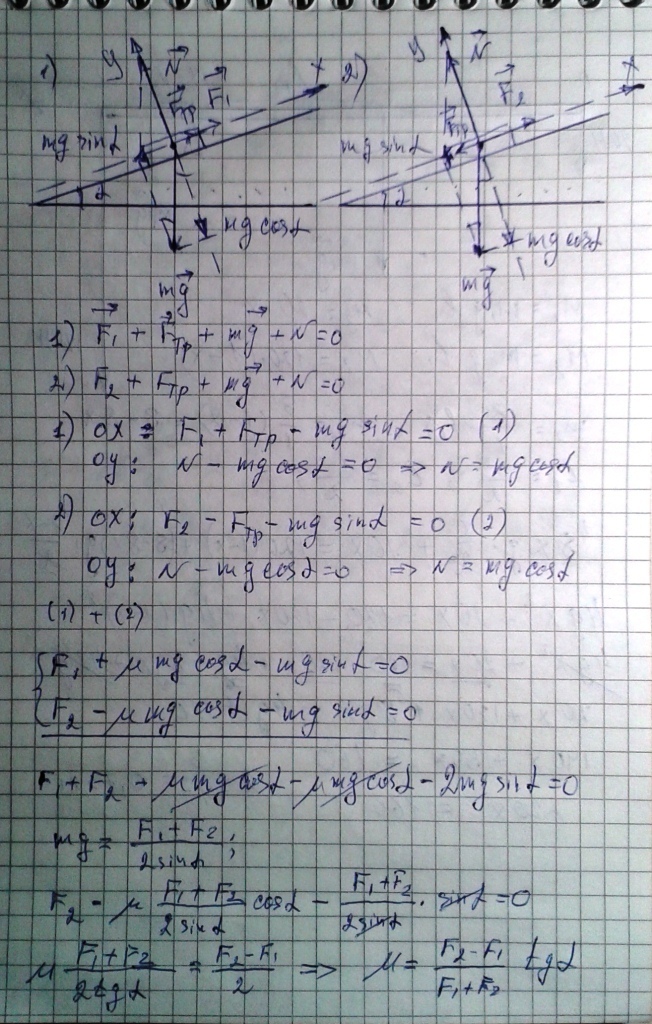 1) y N⃗ F⃗тр F⃗₁ x
mg sinα
α
mg cosα
mg⃗
2) y N⃗ Fтр F⃗₂ x
mg sinα
α
mg cosα
mg⃗
1) F⃗₁ + F⃗тр + mg⃗ + N = 0
2) F₂ + Fтр + mg⃗ + N = 0
1) OX = F₁ + Fтр - mg sinα = 0 (1)
Oy: N - mg cosα = 0 => N = mg cosα
2) OX: F₂ - Fтр - mg sinα = 0 (2)
Oy: N - mg cosα = 0 => N = mg·cosα
(1) + (2)
{F₁ + μ mg cosα - mg sinα = 0
F₂ - μ mg cosα - mg sinα = 0
F₁ + F₂ + μ mg cosα - μ mg cosα - 2mg sinα = 0
mg = (F₁ + F₂)/(2 sinα);
F₂ - μ (F₁ + F₂)/(2 sinα) cosα - (F₁ + F₂)/(2 sinα) · sinα = 0
μ (F₁ + F₂)/(2 tgα) = (F₂ - F₁)/2 => μ = (F₂ - F₁)/(F₁ + F₂) tgα